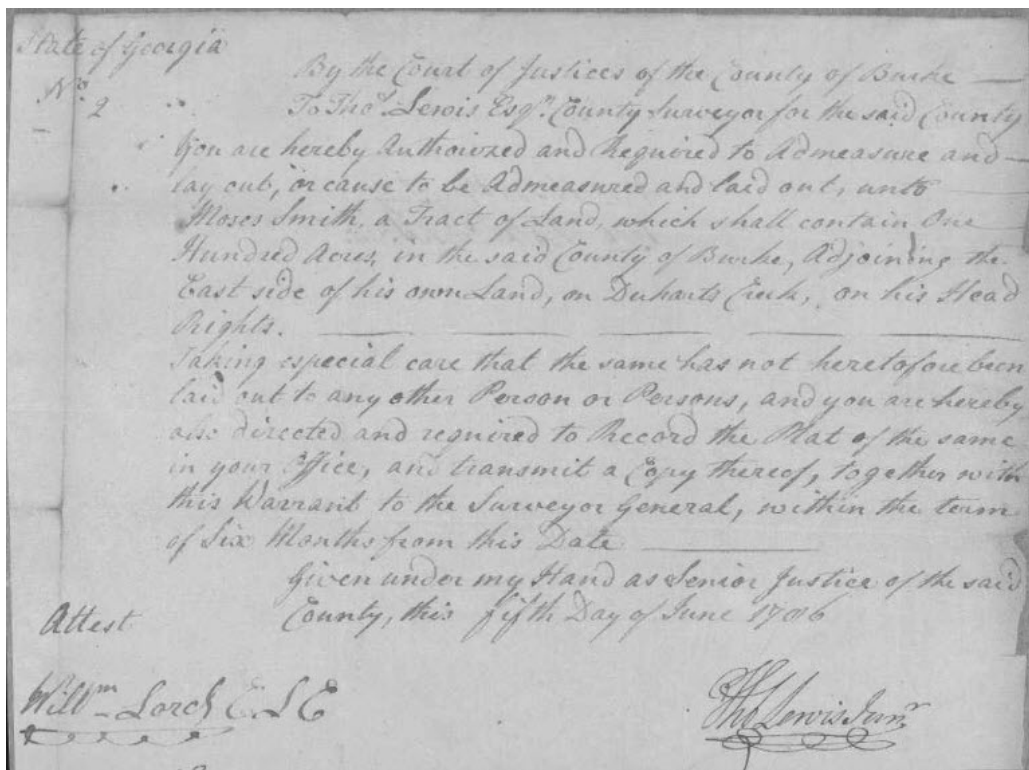 State of Georgia
By the Court of Justices of the County of Burke
No. 2 To Thos. Lewis Esqr. County Surveyor for the said County
You are hereby Authorized and Required to Admeasure and
lay out, or cause to be Admeasured and laid out, unto
Moses Smith, a Tract of Land, which shall contain One
Hundred Acres, in the said County of Burke, Adjoining the
East side of his own Land, on Duharts Creek, on his Head
Rights.
Taking especial care that the same has not heretofore been
laid out to any other Person or Persons, and you are hereby
also directed and required to Record the Plat of the same
in your Office, and transmit a Copy thereof, together with
this Warrant to the Surveyor General, within the term
of Six Months from this Date
Given under my Hand as Senior Justice of the said
County, this fifth Day of June 1786
Attest
Willm
Tho Lewis Junr